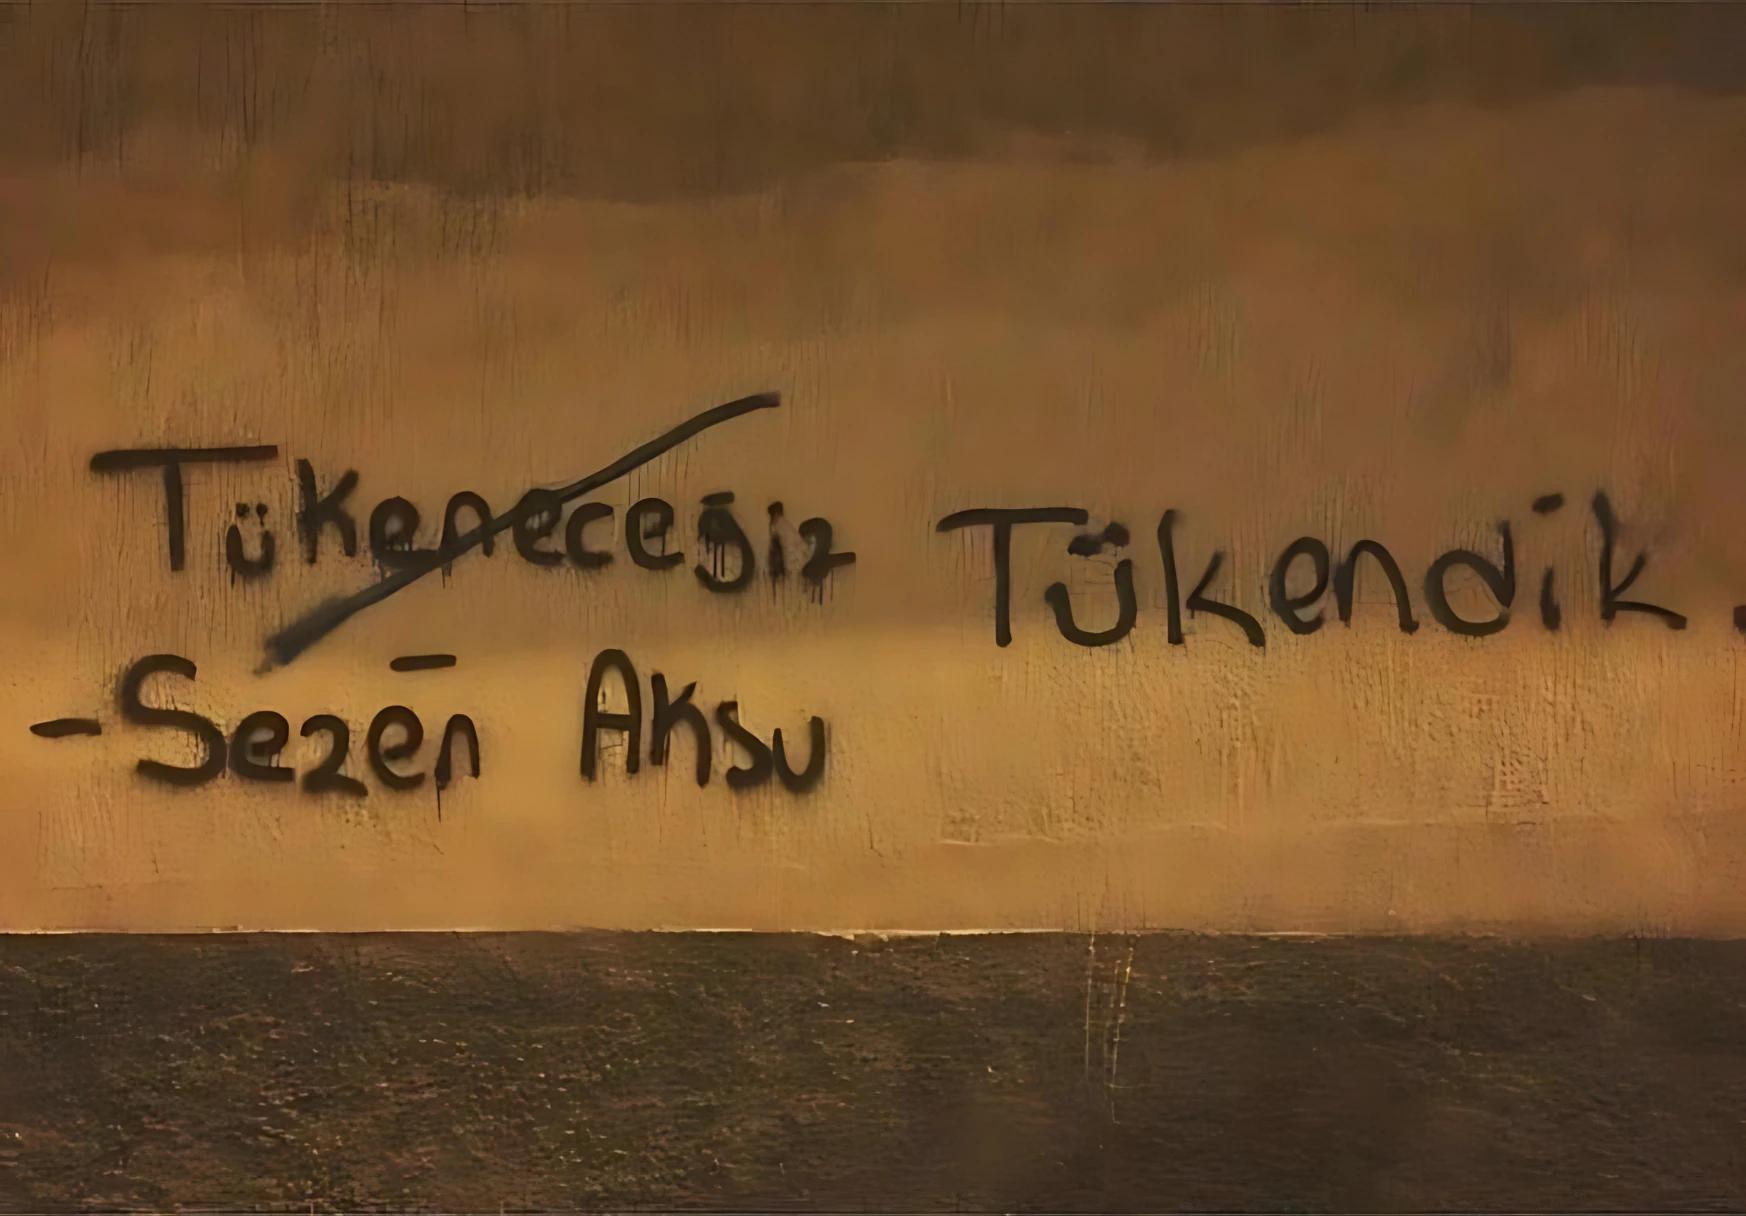 Tükeneceğiz
-Sezen Aksu
Tükendik.